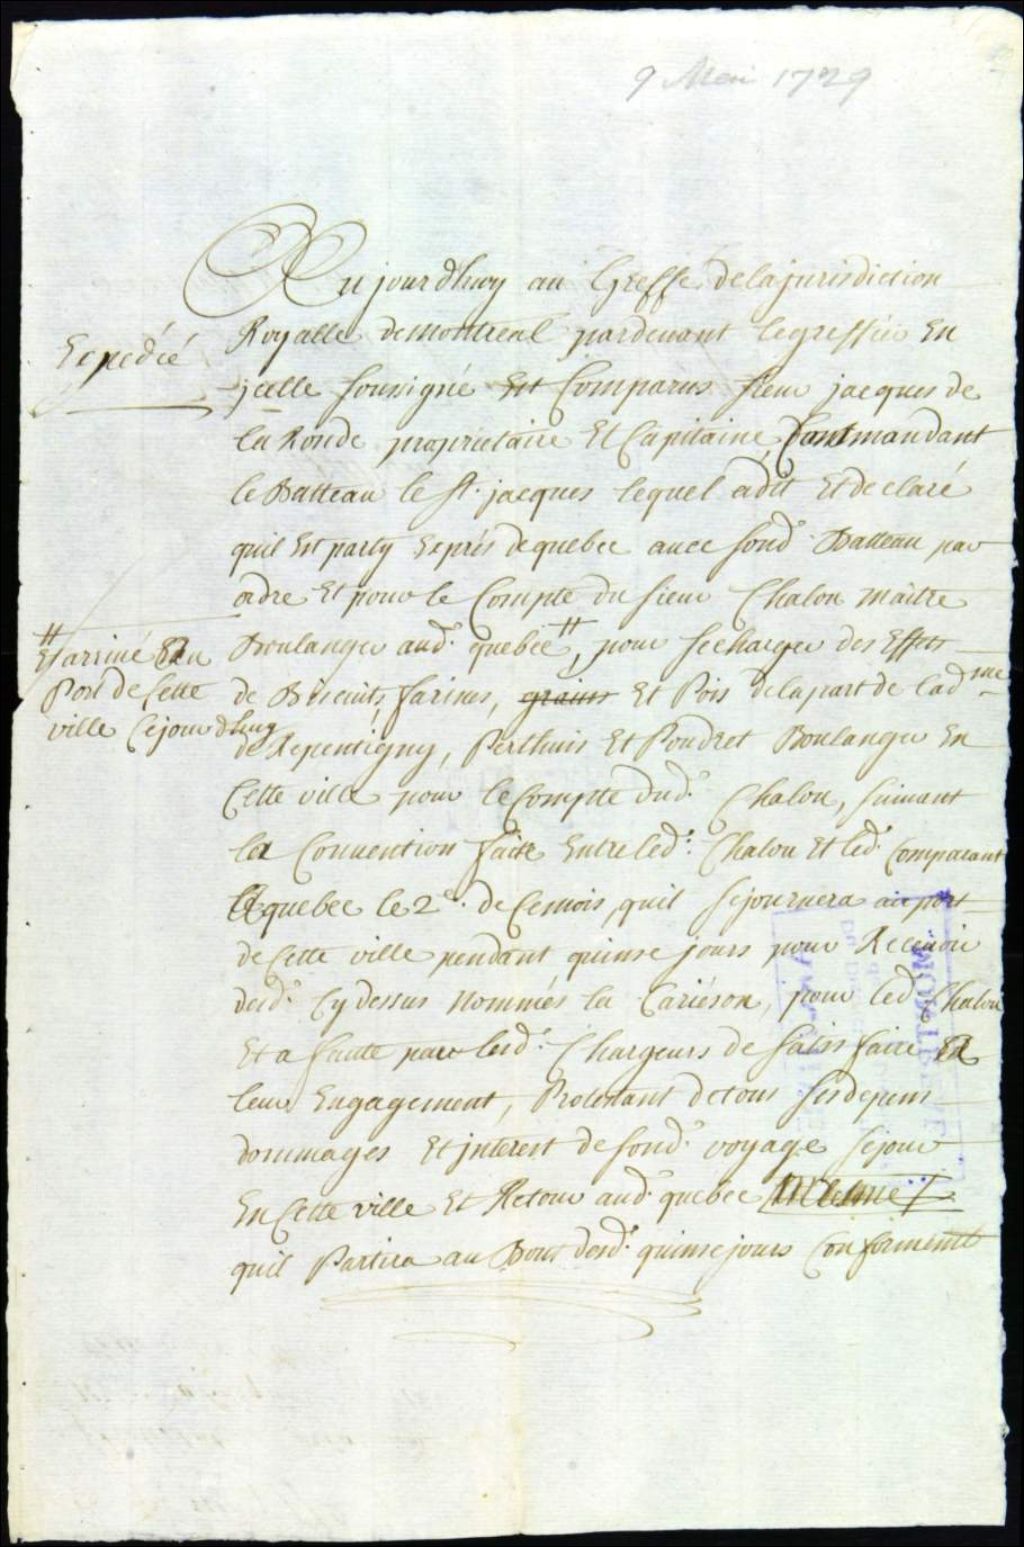 9 Mai 1729
Aujourdhuy au Greffe delajurisdiction
Expedié
Royalle demontreal pardevant legreffier En
jcelle soussigné Est Comparus sieur jacques de
la Ronde proprietaire Et Capitaine Commandant
le Batteau le St. jacques lequel adit Et declaré
quil Est party Exprés dequebec avec sond. Batteau par
ordre Et pour le Compte du sieur Chalou maitre
Boulanger aud. quebec #, pour secharger des Effets
# Et arrivé Au
Port de Cette
ville Cejourdhuy
de Biscuits, farines, grains Et Pois delapart de Lad me
de Repentigny, Perthuis Et Poudret Boulanger En
Cette ville pour leCompte dud. Chalou, suivant
la Convention faite Entre led. Chalou Et led. Comparant
A quebec le 2e. de Cemois, quil sejournera au port
de Cette ville pendant quinse jours pour Recevoir
desd. Cy dessus Nommés la Cariéson, pour led Chalou
Et a faute par lesd. Chargeurs de satisfaire A
leur Engagement, Protestant detous ses depens
dommages Et jnterest de sond. voyage sejour
En Cette ville Et Retour aud. quebec
quil Partira au Bout desd. quinse jours Conformement